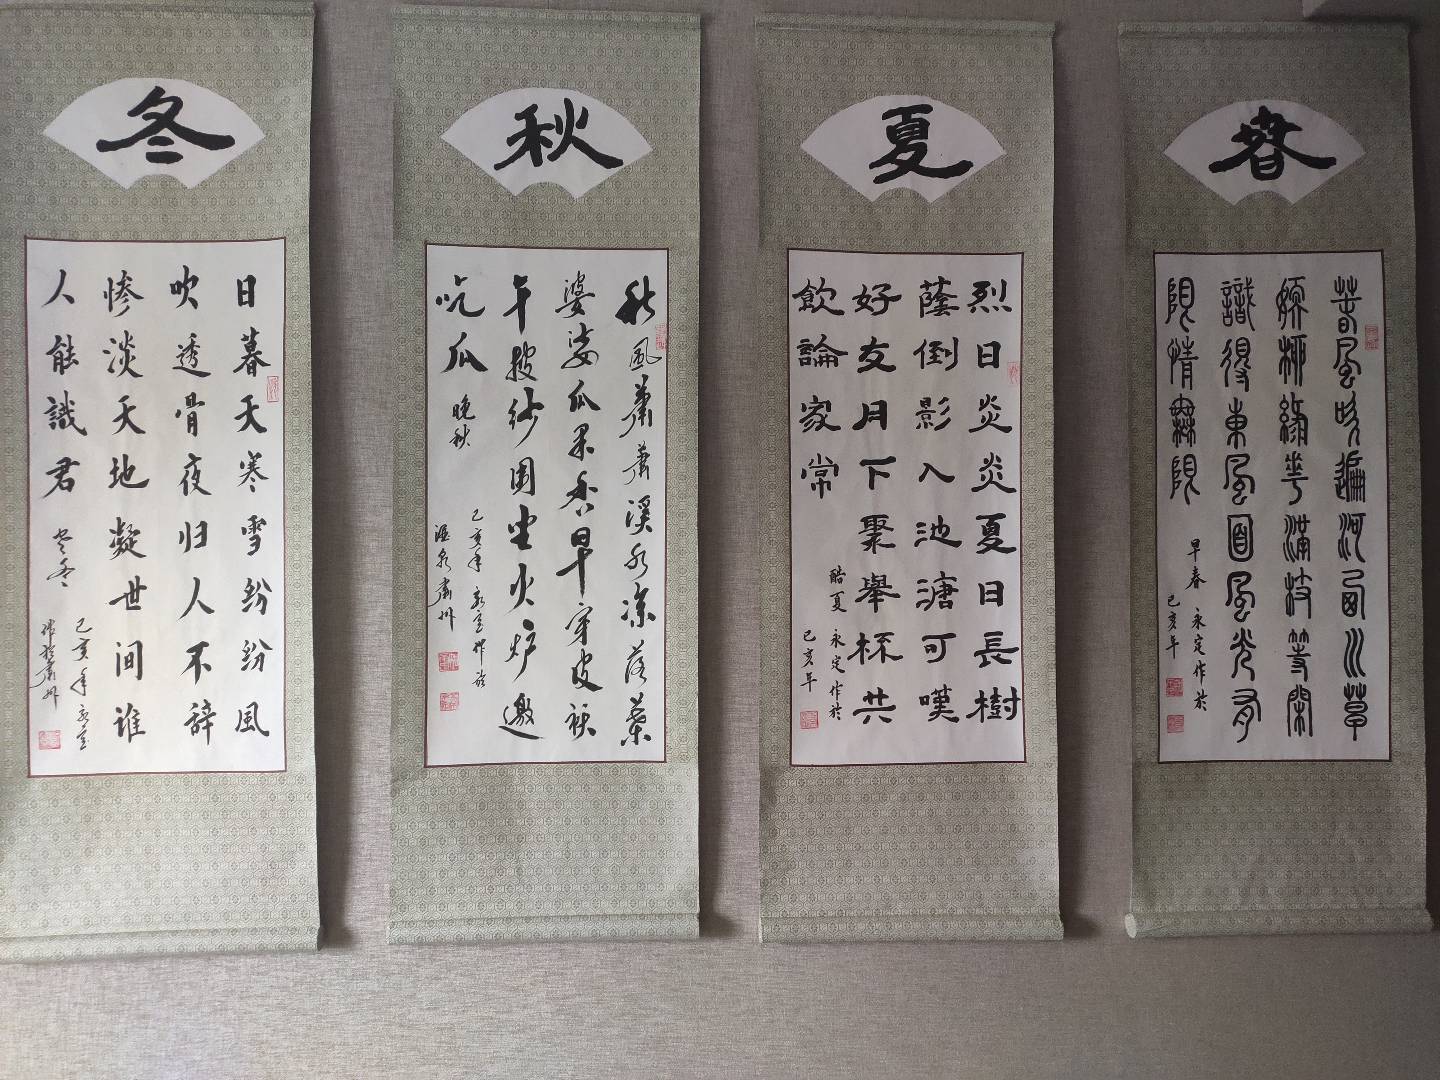 春
春風吹遍河西川草
嫩柳綠華滿枝等閒
識得東風面風光有
限情無限
早春 永定作於
己亥年
夏
烈日炎炎夏日長樹
蔭倒影入池溏可嘆
好友月下聚舉杯共
飲論家常
酷夏 永定作於
己亥年
秋
秋風蕭蕭溪水凉落葉
婆娑瓜果香早穿皮袄
午披纱围坐火炉邀
吃瓜 晚秋
己亥年 永定作於
酒泉肅州
冬
日暮天寒雪纷纷風
吹透骨夜归人不辞
惨淡天地凝世间谁
人能識君 冬
己亥年 永定
作於肅州